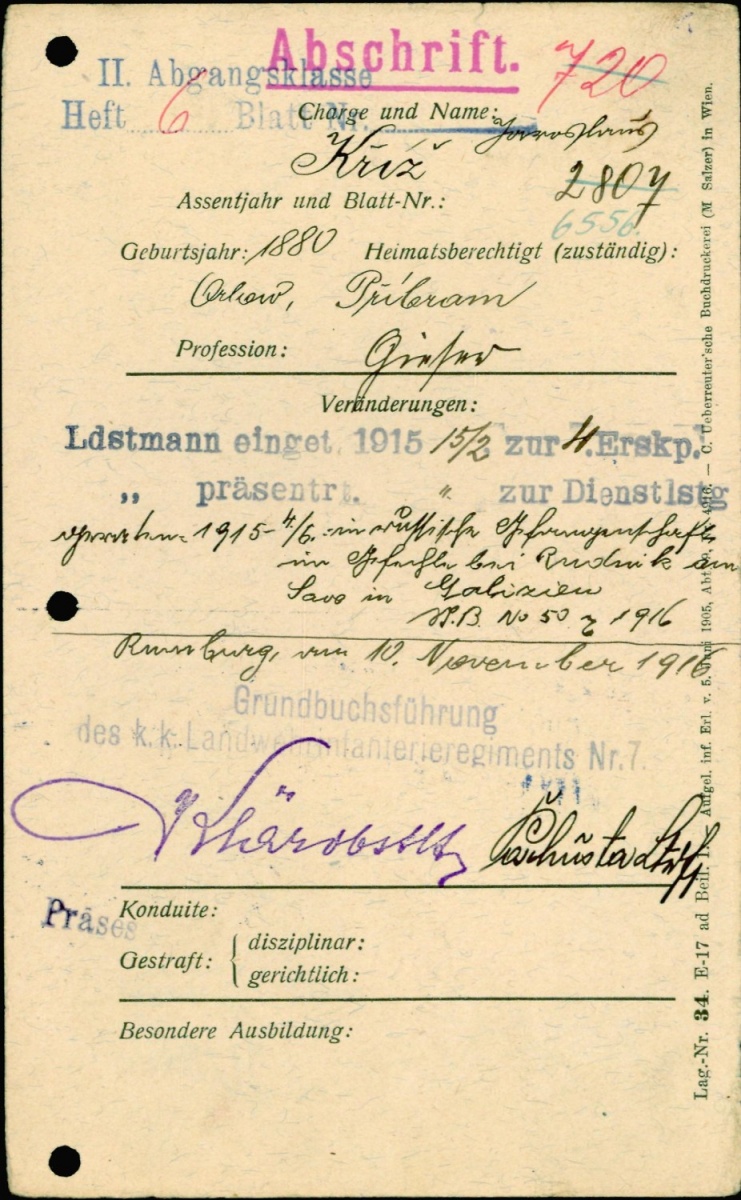 Abschrift.
720
II. Abgangsklasse
Heft 6 Blatt Nr.
Charge und Name:
Jaroslaus
Kříž
2807
Assentjahr und Blatt-Nr.:
6556
Geburtsjahr: 1880 Heimatsberechtigt (zuständig):
Orlow, Příbram
Profession: Gieser
Veränderungen:
Ldstmann einget. 1915 15/2 zur 4. Erskp.
„ präsentrt. " zur Dienstlstg
1915 4/6. in russische Gefangenschaft
im Gefechte bei Rudnik am
in Galizien
No 50 1916
Rumburg, am 10. November 1916
Grundbuchsführung
des k.k. Landwehrinfanterieregiments Nr. 7.
Präses
Konduite:
Gestraft: { disziplinar:
gerichtlich:
Besondere Ausbildung:
Lag.-Nr. 34. E-17 ad Beil. Aufgel. inf. Erl. v. 5. Juni 1905, — C. Ueberreuter'sche Buchdruckerei (M Salzer) in Wien.